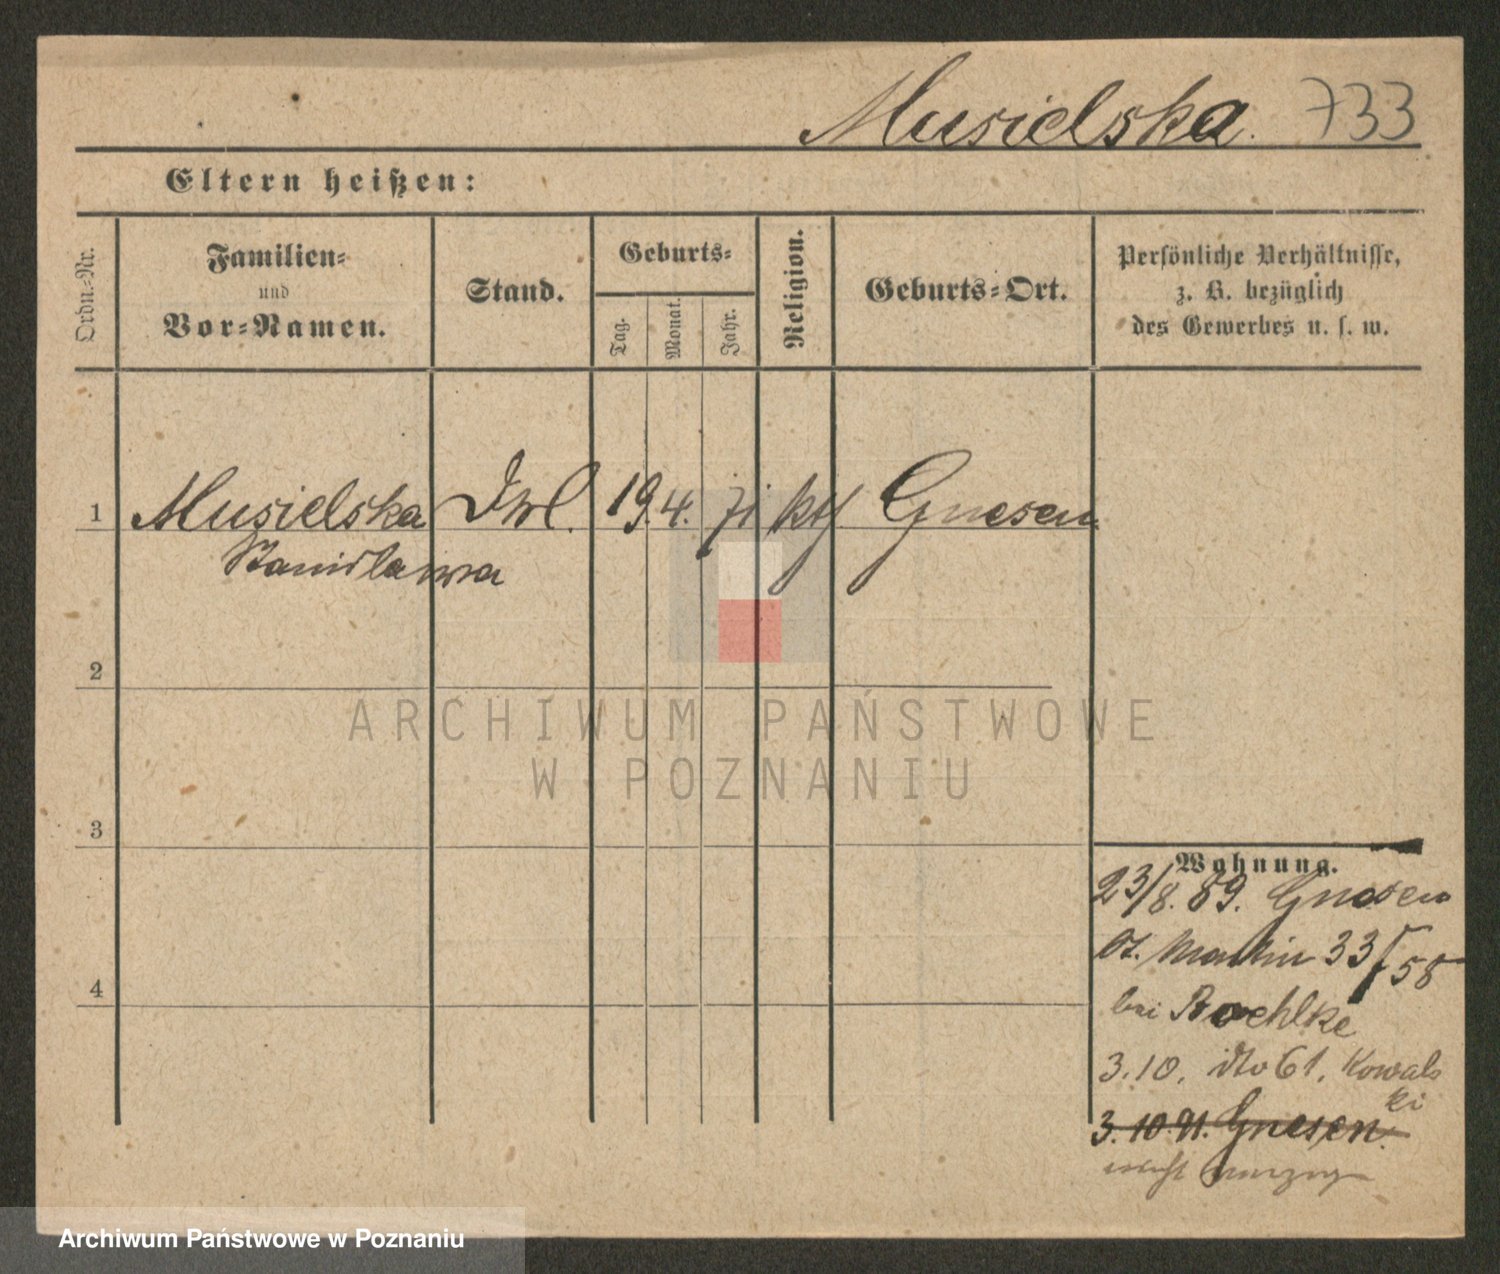 Musielska. 733
Eltern heißen:
Ordn.-Nr.
Familien-
und
Vor-Namen.
Stand.
Geburts-
Tag.
Monat.
Jahr.
Religion.
Geburts-Ort.
Persönliche Verhältnisse,
z. B. bezüglich
des Gewerbes u. s. w.
1 Musielska 19. 4. 71 kth Gnesen
Stanislawa
2
3
4
Wohnung.
23/8. 89. Gnesen
St. Martin 33/58
bei Roehlke
3.10. dto 61. Kowals
ki
3. 10. 91. Gnesen.
nicht
ARCHIWUM PAŃSTWOWE
W POZNANIU
Archiwum Państwowe w Poznaniu